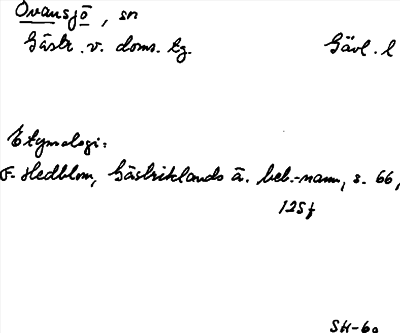 Ovansjö, sn
Gästr. v. doms. tg. Gävl. l
Etymologi:
F. Hedblom, Gästriklands ä. beb.-namn, s. 66,
125f
SH-60